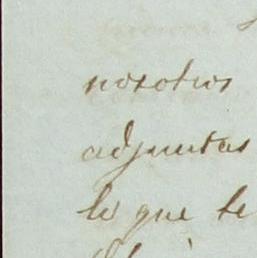 nosotros
adjuntas
lo que te